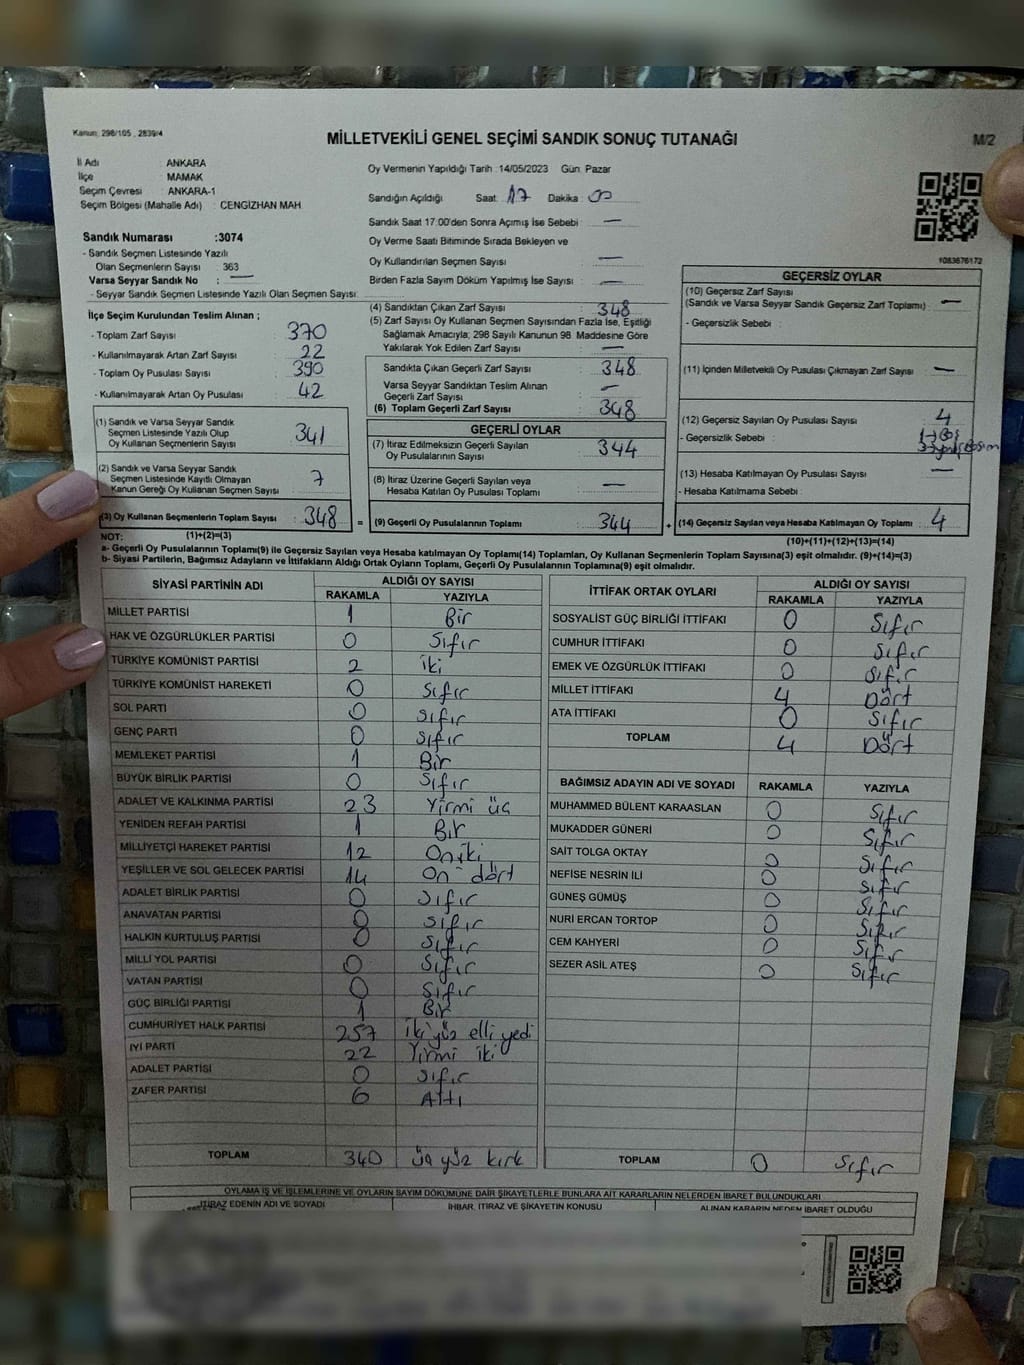 Kanun: 298/105 , 2839/4
MİLLETVEKİLİ GENEL SEÇİMİ SANDIK SONUÇ TUTANAĞI
M/2
İl Adı : ANKARA
İlçe : MAMAK
Seçim Çevresi : ANKARA-1
Seçim Bölgesi (Mahalle Adı) : CENGİZHAN MAH.
Sandık Numarası :3074
- Sandık Seçmen Listesinde Yazılı
Olan Seçmenlerin Sayısı : 363
Varsa Seyyar Sandık No : —
- Seyyar Sandık Seçmen Listesinde Yazılı Olan Seçmen Sayısı:
İlçe Seçim Kurulundan Teslim Alınan ;
- Toplam Zarf Sayısı 370
- Kullanılmayarak Artan Zarf Sayısı 22
- Toplam Oy Pusulası Sayısı 390
- Kullanılmayarak Artan Oy Pusulası 42
(1) Sandık ve Varsa Seyyar Sandık
Seçmen Listesinde Yazılı Olup
Oy Kullanan Seçmenlerin Sayısı 341
(2) Sandık ve Varsa Seyyar Sandık
Seçmen Listesinde Kayıtlı Olmayan
Kanun Gereği Oy Kullanan Seçmen Sayısı 7
(3) Oy Kullanan Seçmenlerin Toplam Sayısı : 348
Oy Vermenin Yapıldığı Tarih :14/05/2023 Gün: Pazar
Sandığın Açıldığı Saat: 17 Dakika: 00
Sandık Saat 17:00'den Sonra Açımış İse Sebebi : —
Oy Verme Saati Bitiminde Sırada Bekleyen ve
Oy Kullandırılan Seçmen Sayısı : —
Birden Fazla Sayım Döküm Yapılmış İse Sayısı : —
(4) Sandıktan Çıkan Zarf Sayısı : 348
(5) Zarf Sayısı Oy Kullanan Seçmen Sayısından Fazla İse, Eşitliği
Sağlamak Amacıyla; 298 Sayılı Kanunun 98. Maddesine Göre
Yakılarak Yok Edilen Zarf Sayısı : —
Sandıkta Çıkan Geçerli Zarf Sayısı : 348
Varsa Seyyar Sandıktan Teslim Alınan
Geçerli Zarf Sayısı : —
(6) Toplam Geçerli Zarf Sayısı : 348
GEÇERLİ OYLAR
(7) İtiraz Edilmeksizin Geçerli Sayılan
Oy Pusulalarının Sayısı : 344
(8) İtiraz Üzerine Geçerli Sayılan veya
Hesaba Katılan Oy Pusulası Toplamı : —
= (9) Geçerli Oy Pusulalarının Toplamı : 344
Y083676172
GEÇERSİZ OYLAR
(10) Geçersiz Zarf Sayısı
(Sandık ve Varsa Seyyar Sandık Geçersiz Zarf Toplamı) : —
- Geçersizlik Sebebi :
(11) İçinden Milletvekili Oy Pusulası Çıkmayan Zarf Sayısı : —
(12) Geçersiz Sayılan Oy Pusulası Sayısı : 4
- Geçersizlik Sebebi :
(13) Hesaba Katılmayan Oy Pusulası Sayısı : —
- Hesaba Katılmama Sebebi :
+ (14) Geçersiz Sayılan veya Hesaba Katılmayan Oy Toplamı : 4
NOT: (1)+(2)=(3) (10)+(11)+(12)+(13)=(14)
a- Geçerli Oy Pusulalarının Toplamı(9) ile Geçersiz Sayılan veya Hesaba katılmayan Oy Toplamı(14) Toplamları, Oy Kullanan Seçmenlerin Toplam Sayısına(3) eşit olmalıdır. (9)+(14)=(3)
b- Siyasi Partilerin, Bağımsız Adayların ve İttifakların Aldığı Ortak Oyların Toplamı, Geçerli Oy Pusulalarının Toplamına(9) eşit olmalıdır.
SİYASİ PARTİNİN ADI ALDIĞI OY SAYISI
RAKAMLA YAZIYLA
MİLLET PARTİSİ 1 Bir
HAK VE ÖZGÜRLÜKLER PARTİSİ 0 Sıfır
TÜRKİYE KOMÜNİST PARTİSİ 2 iki
TÜRKİYE KOMÜNİST HAREKETİ 0 Sıfır
SOL PARTİ 0 Sıfır
GENÇ PARTİ 0 Sıfır
MEMLEKET PARTİSİ 1 Bir
BÜYÜK BİRLİK PARTİSİ 0 Sıfır
ADALET VE KALKINMA PARTİSİ 23 Yirmi üç
YENİDEN REFAH PARTİSİ 1 Bir
MİLLİYETÇİ HAREKET PARTİSİ 12 On iki
YEŞİLLER VE SOL GELECEK PARTİSİ 14 On dört
ADALET BİRLİK PARTİSİ 0 Sıfır
ANAVATAN PARTİSİ 0 Sıfır
HALKIN KURTULUŞ PARTİSİ 0 Sıfır
MİLLİ YOL PARTİSİ 0 Sıfır
VATAN PARTİSİ 0 Sıfır
GÜÇ BİRLİĞİ PARTİSİ 1 Bir
CUMHURİYET HALK PARTİSİ 257 iki yüz elli yedi
İYİ PARTİ 22 Yirmi iki
ADALET PARTİSİ 0 Sıfır
ZAFER PARTİSİ 6 Altı
TOPLAM 340 üç yüz kırk
İTTİFAK ORTAK OYLARI ALDIĞI OY SAYISI
RAKAMLA YAZIYLA
SOSYALİST GÜÇ BİRLİĞİ İTTİFAKI 0 Sıfır
CUMHUR İTTİFAKI 0 Sıfır
EMEK VE ÖZGÜRLÜK İTTİFAKI 0 Sıfır
MİLLET İTTİFAKI 4 Dört
ATA İTTİFAKI 0 Sıfır
TOPLAM 4 Dört
BAĞIMSIZ ADAYIN ADI VE SOYADI RAKAMLA YAZIYLA
MUHAMMED BÜLENT KARAASLAN 0 Sıfır
MUKADDER GÜNERİ 0 Sıfır
SAİT TOLGA OKTAY 0 Sıfır
NEFİSE NESRİN İLİ 0 Sıfır
GÜNEŞ GÜMÜŞ 0 Sıfır
NURİ ERCAN TORTOP 0 Sıfır
CEM KAHYERİ 0 Sıfır
SEZER ASİL ATEŞ 0 Sıfır
TOPLAM 0 Sıfır
OYLAMA İŞ VE İŞLEMLERİNE VE OYLARIN SAYIM DÖKÜMÜNE DAİR ŞİKAYETLERLE BUNLARA AİT KARARLARIN NELERDEN İBARET BULUNDUKLARI
İTİRAZ EDENİN ADI VE SOYADI İHBAR, İTİRAZ VE ŞİKAYETİN KONUSU ALINAN KARARIN NEDEN İBARET OLDUĞU